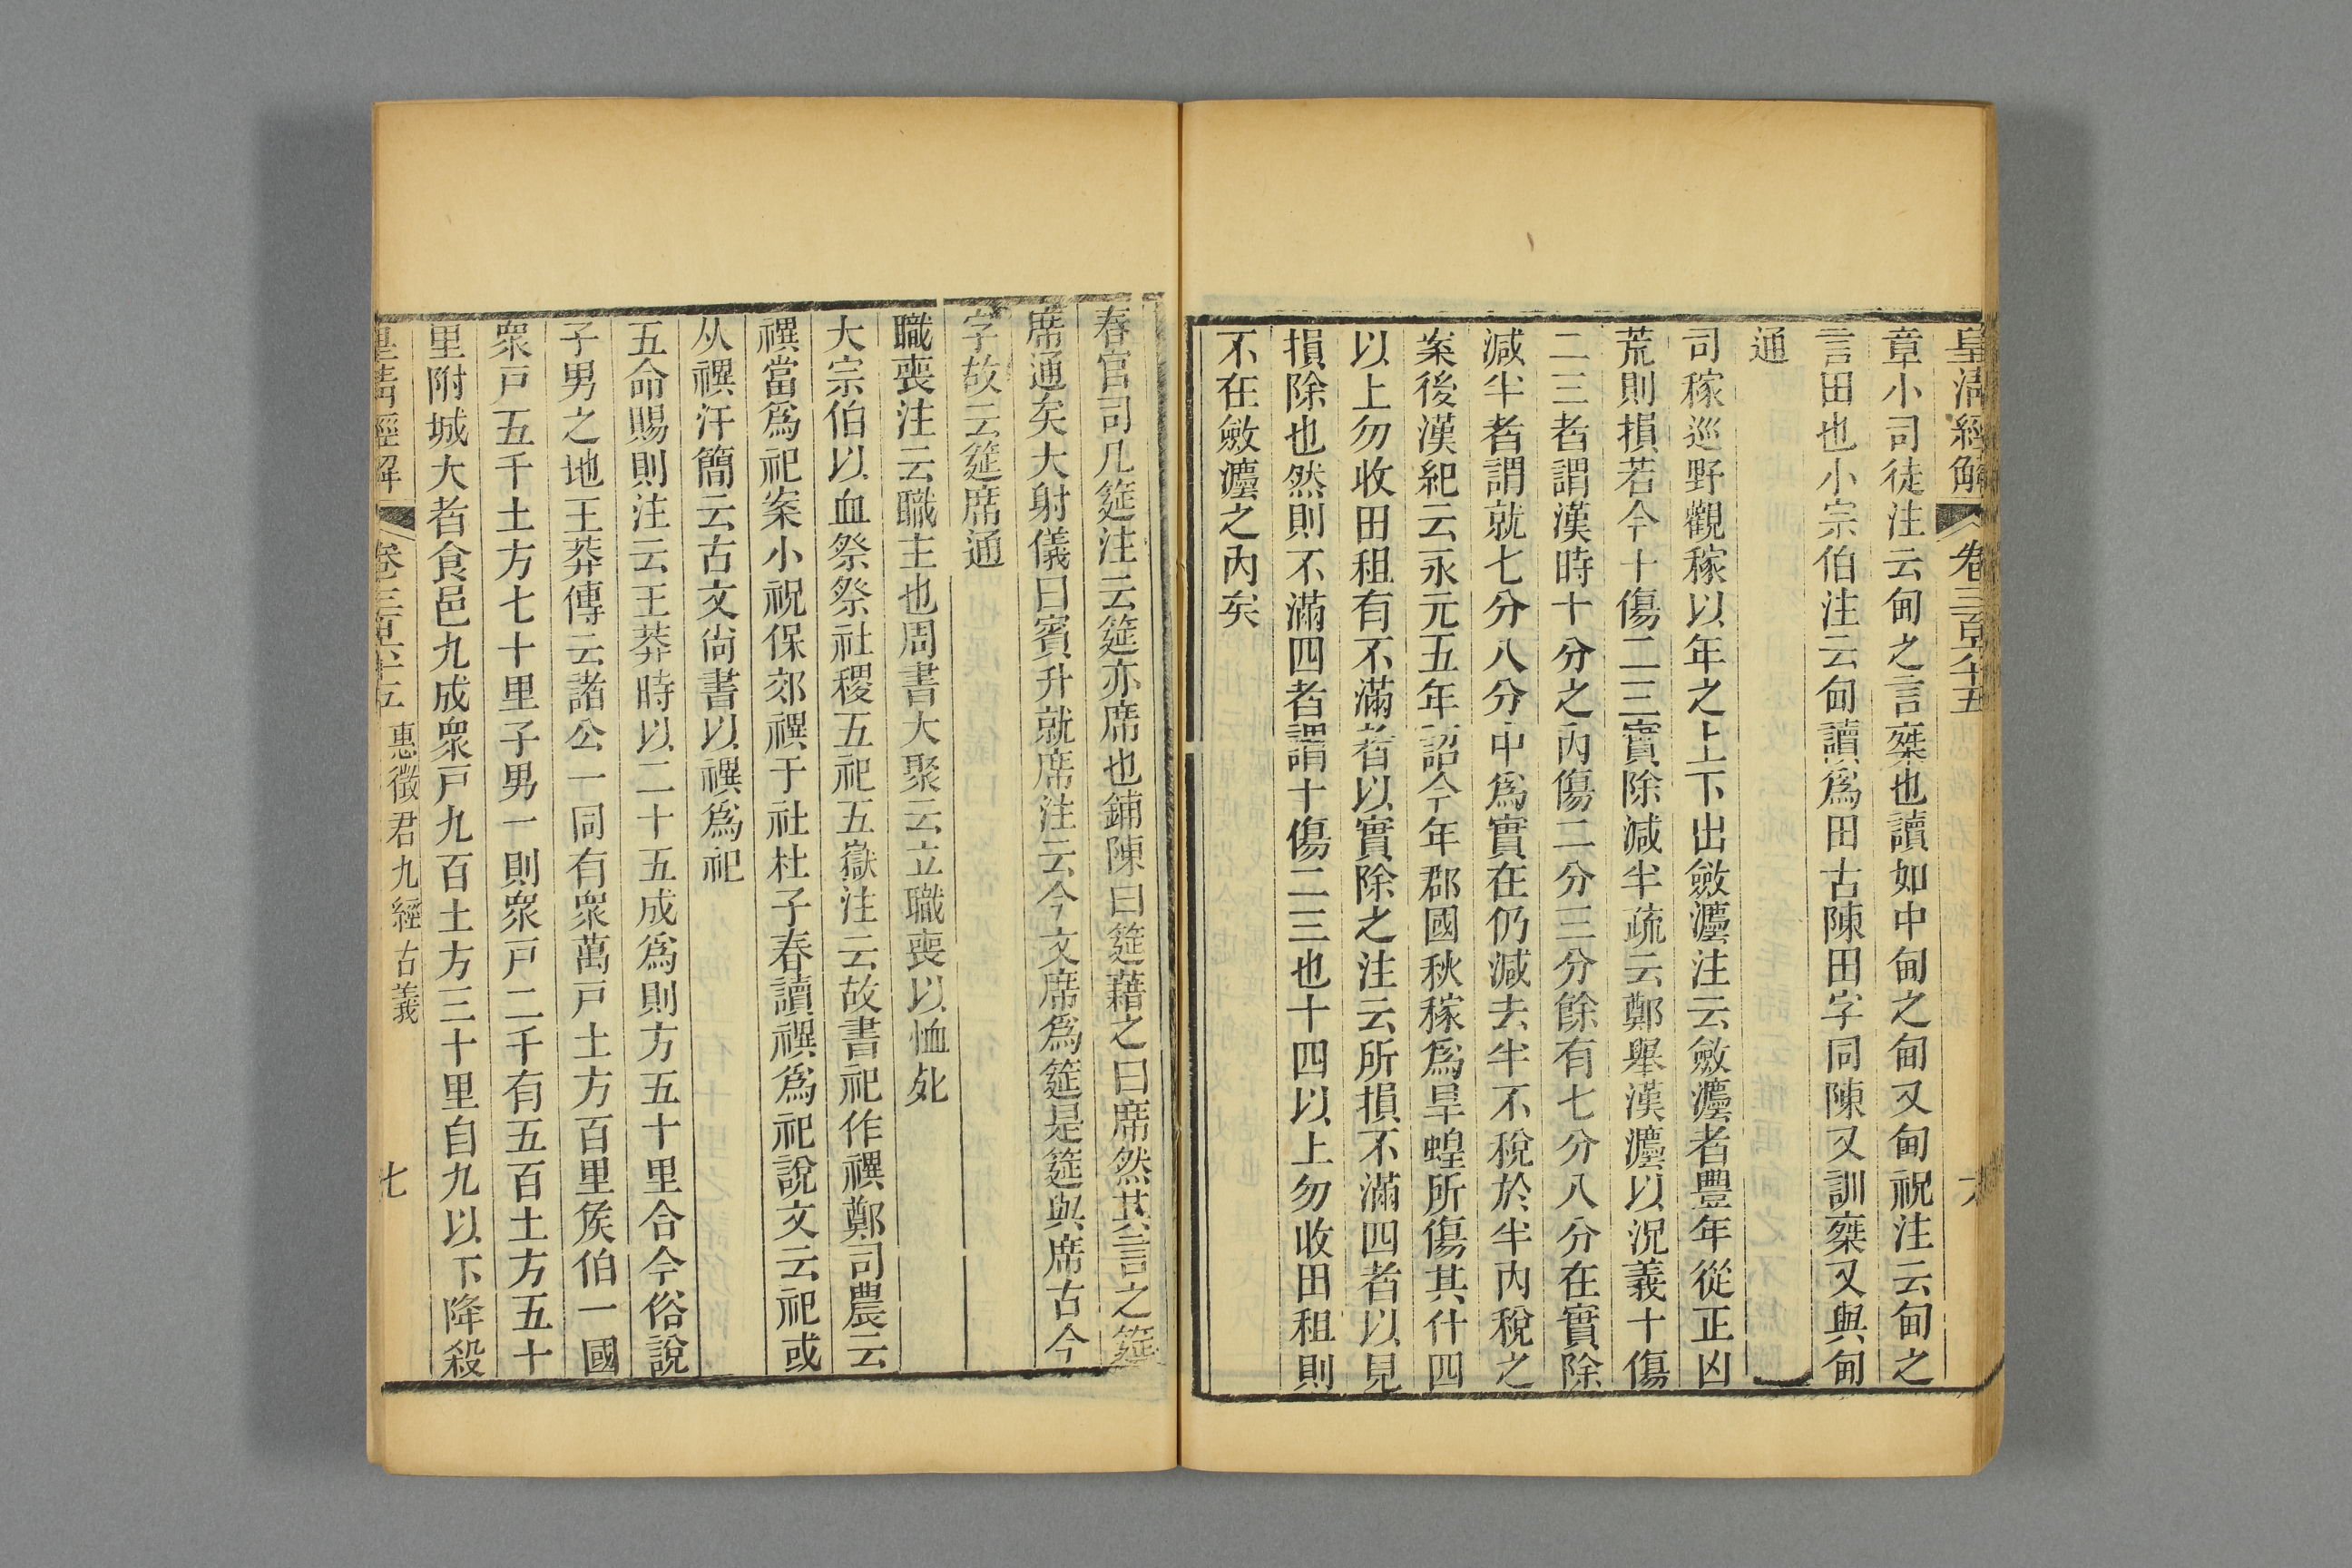 皇清經解 卷三百六十五 六
章小司徒注云甸之言乘也讀如中甸之甸又甸祝注云甸之
言田也小宗伯注云甸讀爲田古陳田字同陳又訓乘又與甸
通
司稼巡野觀稼以年之上下出斂灋注云斂灋者豐年從正凶
荒則損若今十傷二三實除減半疏云鄭舉漢灋以況義十傷
二三者謂漢時十分之內傷二分三分餘有七分八分在實除
減半者謂就七分八分中爲實在仍減去半不稅於半內稅之
案後漢紀云永元五年詔今年郡國秋稼爲旱蝗所傷其什四
以上勿收田租有不滿者以實除之注云所損不滿四者以見
損除也然則不滿四者謂十傷二三也十四以上勿收田租則
不在斂灋之內矣
春官司几筵注云筵亦席也鋪陳曰筵藉之曰席然其言之筵
席通矣大射儀曰賓升就席注云今文席爲筵是筵與席古今
字故云筵席通
職喪注云職主也周書大聚云立職喪以恤死
大宗伯以血祭祭社稷五祀五嶽注云故書祀作禩鄭司農云
禩當爲祀案小祝保郊禩于社杜子春讀禩爲祀說文云祀或
从禩汗簡云古文尙書以禩爲祀
五命賜則注云王莽時以二十五成爲則方五十里合今俗說
子男之地王莽傳云諸公一同有眾萬戸土方百里矦伯一國
眾戸五千土方七十里子男一則眾戸二千有五百土方五十
里附城大者食邑九成眾戸九百土方三十里自九以下降殺
皇清經解 卷三百六十五 惠徵君九經古義 七